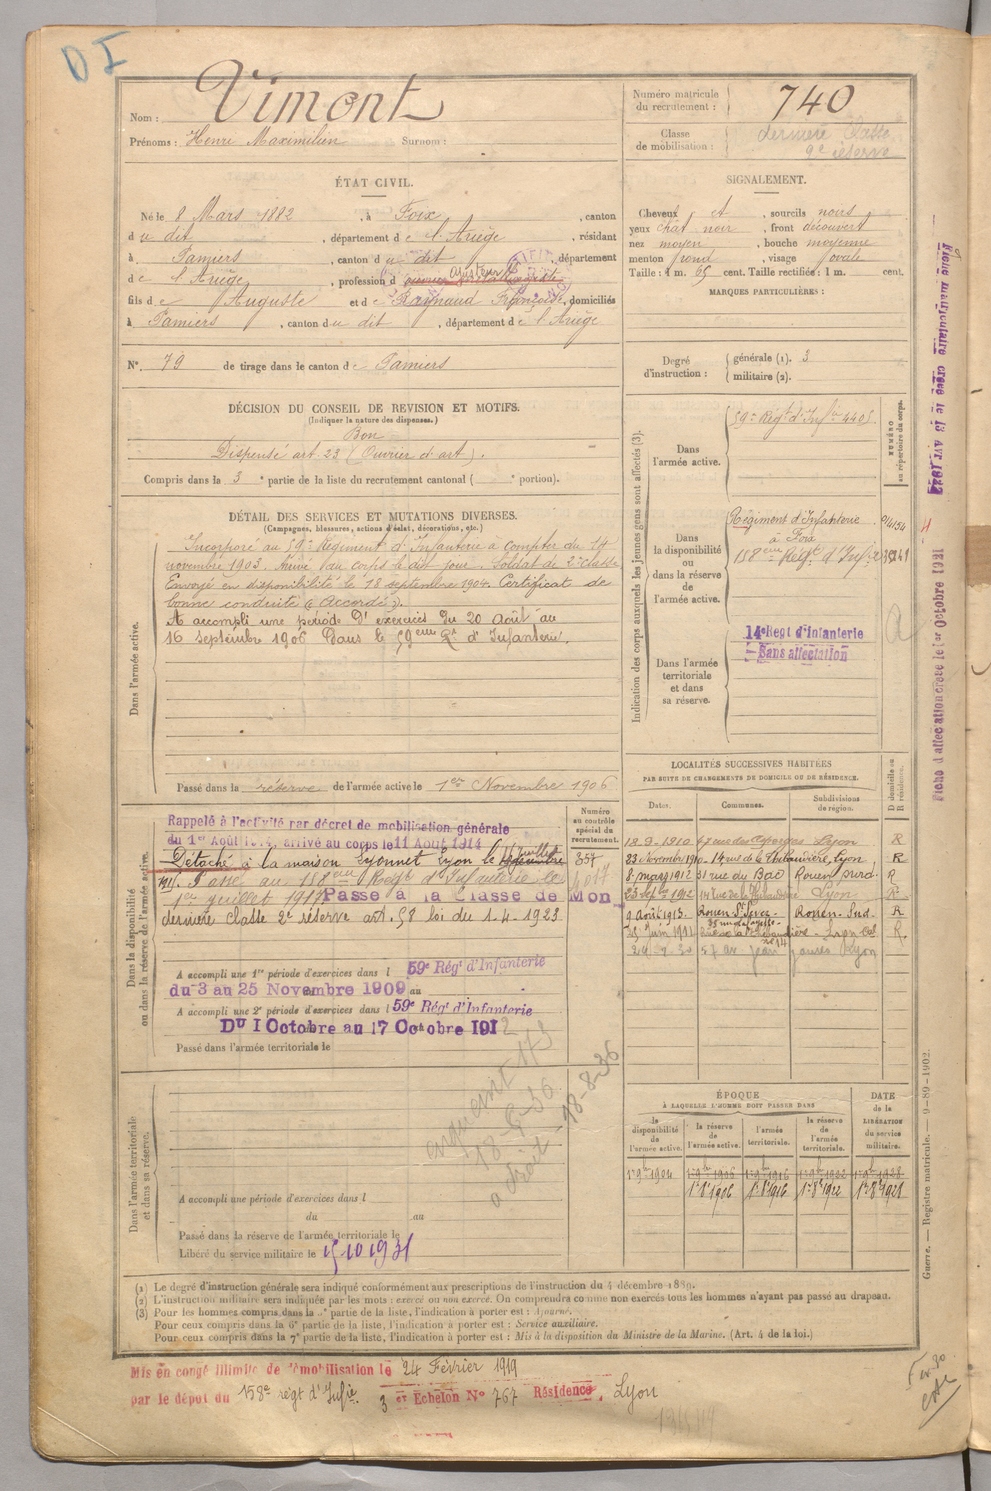 DI
Nom : Vimont
Prénoms : Henri Maximilien Surnom :
Numéro matricule du recrutement : 740
Classe de mobilisation : dernière Classe 2e réserve
ÉTAT CIVIL.
Né le 8 Mars 1882, à Foix, canton
du dit, département de l'Ariège, résidant
à Pamiers, canton du dit, département
de l'Ariège, profession d ajusteur
fils de Auguste et de Raynaud Françoise, domiciliés
à Pamiers, canton du dit, département de l'Ariège
N° 79 de tirage dans le canton de Pamiers
SIGNALEMENT.
Cheveux et, sourcils noirs
yeux chat noir, front découvert
nez moyen, bouche moyenne
menton rond, visage ovale
Taille : 1 m. 65 cent. Taille rectifiée : 1 m. cent.
MARQUES PARTICULIÈRES :
Degré d'instruction : générale (1). 3
militaire (2).
DÉCISION DU CONSEIL DE REVISION ET MOTIFS.
(Indiquer la nature des dispenses.)
Bon
Dispensé art. 23 (Ouvrier d'art).
Compris dans la 3e partie de la liste du recrutement cantonal ( e portion).
DÉTAIL DES SERVICES ET MUTATIONS DIVERSES.
(Campagnes, blessures, actions d'éclat, décorations, etc.)
Dans l'armée active.
Incorporé au 59e Régiment d'Infanterie à compter du 14
novembre 1903. Arrivé au corps le dit jour. Soldat de 2e classe
Envoyé en disponibilité le 18 septembre 1904. Certificat de
bonne conduite "Accordé".
A accompli une période d'exercices du 20 août au
16 septembre 1906 dans le 59eme Rt d'Infanterie.
Passé dans la réserve de l'armée active le 1er Novembre 1906
Indication des corps auxquels les jeunes gens sont affectés (3).
NUMÉRO au répertoire du corps.
Dans l'armée active.
59e Régt d'Infie 4405
Dans la disponibilité ou dans la réserve de l'armée active.
Régiment d'Infanterie
à Foix
158eme Régt d'Infie
Dans l'armée territoriale et dans sa réserve.
14e Regt d'Infanterie
Sans affectation
Dans la disponibilité ou dans la réserve de l'armée active.
Rappelé à l'activité par décret de mobilisation générale
du 1er Août 1914, arrivé au corps le 11 Août 1914
Détaché à la maison Lyonnet Lyon le
Passé au 158eme Régt d'Infanterie le
1er juillet 1917 Passé à la Classe de Mon
dernière classe 2e réserve art. 58 loi du 1-4-1923
Numéro au contrôle spécial du recrutement.
357
A accompli une 1re période d'exercices dans l 59e Régt d'Infanterie
du 3 au 25 Novembre 1909 au
A accompli une 2e période d'exercices dans l 59e Régt d'Infanterie
Du 1 Octobre au 17 Octobre 1912
Passé dans l'armée territoriale le
LOCALITÉS SUCCESSIVES HABITÉES
PAR SUITE DE CHANGEMENTS DE DOMICILE OU DE RÉSIDENCE.
Dates. Communes. Subdivisions de région. D domicile ou R résidence.
18.9.1910 67 rue des Asperges Lyon R
23 Novembre 1910 14, rue de la Thibaudière, Lyon R
8 mars 1912 31 rue du Bac Rouen sud. R
23 Sept 1912 14 rue de la Thibaudière Lyon R
9 août 1913 Rouen St Sever Rouen-Sud R
24-9-30 57 av Jean Jaurès Lyon
Dans l'armée territoriale et dans sa réserve.
18-8-36
A accompli une période d'exercices dans l
du au
Passé dans la réserve de l'armée territoriale le
Libéré du service militaire le 15 10 1931
ÉPOQUE
À LAQUELLE L'HOMME DOIT PASSER DANS
la disponibilité de l'armée active.
la réserve de l'armée active.
l'armée territoriale.
la réserve de l'armée territoriale.
DATE de la LIBÉRATION du service militaire.
1er 9bre 1904 1er 9bre 1906 1er 9bre 1916 1er 9bre 1922 1er 9bre 1928
1er 8bre 1906 1er 8bre 1916 1er 8bre 1922 1er 8bre 1928
(1) Le degré d'instruction générale sera indiqué conformément aux prescriptions de l'instruction du 4 décembre 1889.
(2) L'instruction militaire sera indiquée par les mots : exercé ou non exercé. On comprendra comme non exercés tous les hommes n'ayant pas passé au drapeau.
(3) Pour les hommes compris dans la partie de la liste, l'indication à porter est : Ajourné.
Pour ceux compris dans la 6e partie de la liste, l'indication à porter est : Service auxiliaire.
Pour ceux compris dans la 7e partie de la liste, l'indication à porter est : Mis à la disposition du Ministre de la Marine. (Art. 4 de la loi.)
Mis en congé illimité de démobilisation le 24 Février 1919
par le dépôt du 158e régt d'Infie. 3 er Echelon N° 767 Résidence Lyon
Guerre. — Registre matricule. — 9-89-1902.
Fiche matriculaire créée le 13 AVR 1922
Fiche d'affectation créée le 1er Octobre 1931